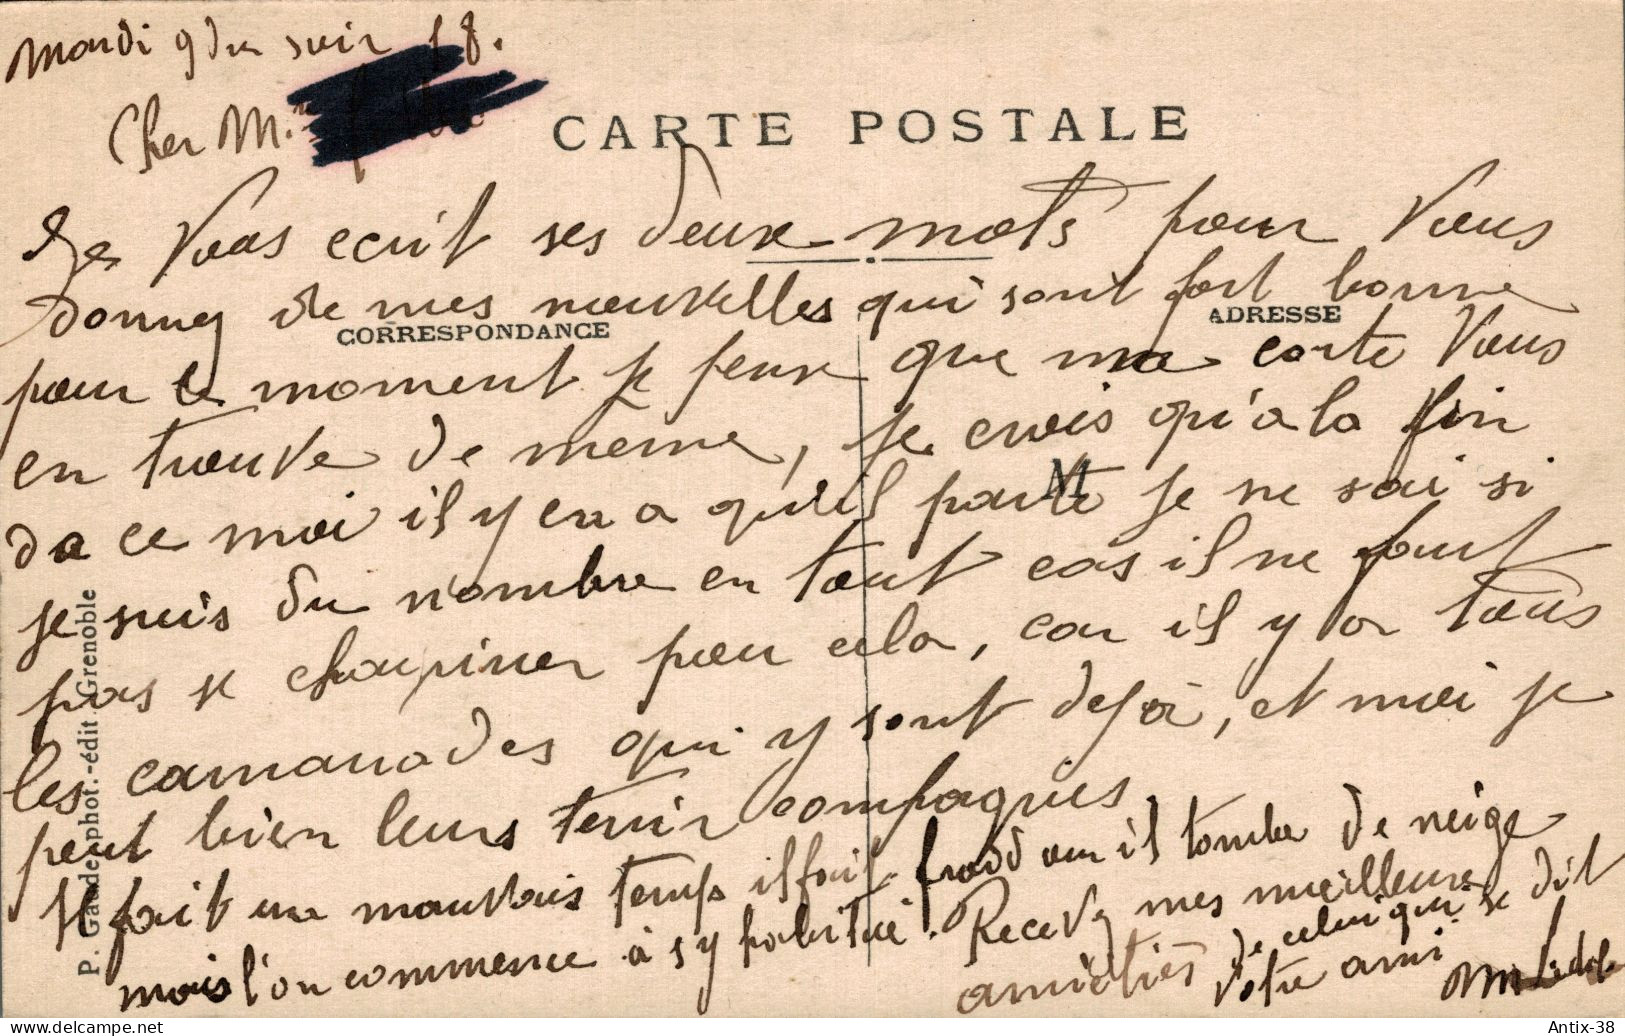 Mardi 9 du soir 18.
Cher M.
CARTE POSTALE
Je Vous ecrit ses deux mots pour Vous
donney de mes nouvelles qui sont fort bonne
CORRESPONDANCE
ADRESSE
pour le moment je peux que ma carte Vous
en trouve de meme, je crois qu'a la fin
M
da ce moi il y en a qu'il parte je ne sai si
je suis du nombre en tout cas il ne faut
pas se chagriner pour cela, car il y a tous
les camarades qui y sont deja, et moi je
peut bien leurs tenir compagnies
Il fait un mauvais temps il fait froid il tombe de neige
mais l'on commence à s'y habitué. Recevez mes meilleure
amitiés de celui qui se dit
Votre ami
P. Gaudephot.-édit Grenoble
Antix-38